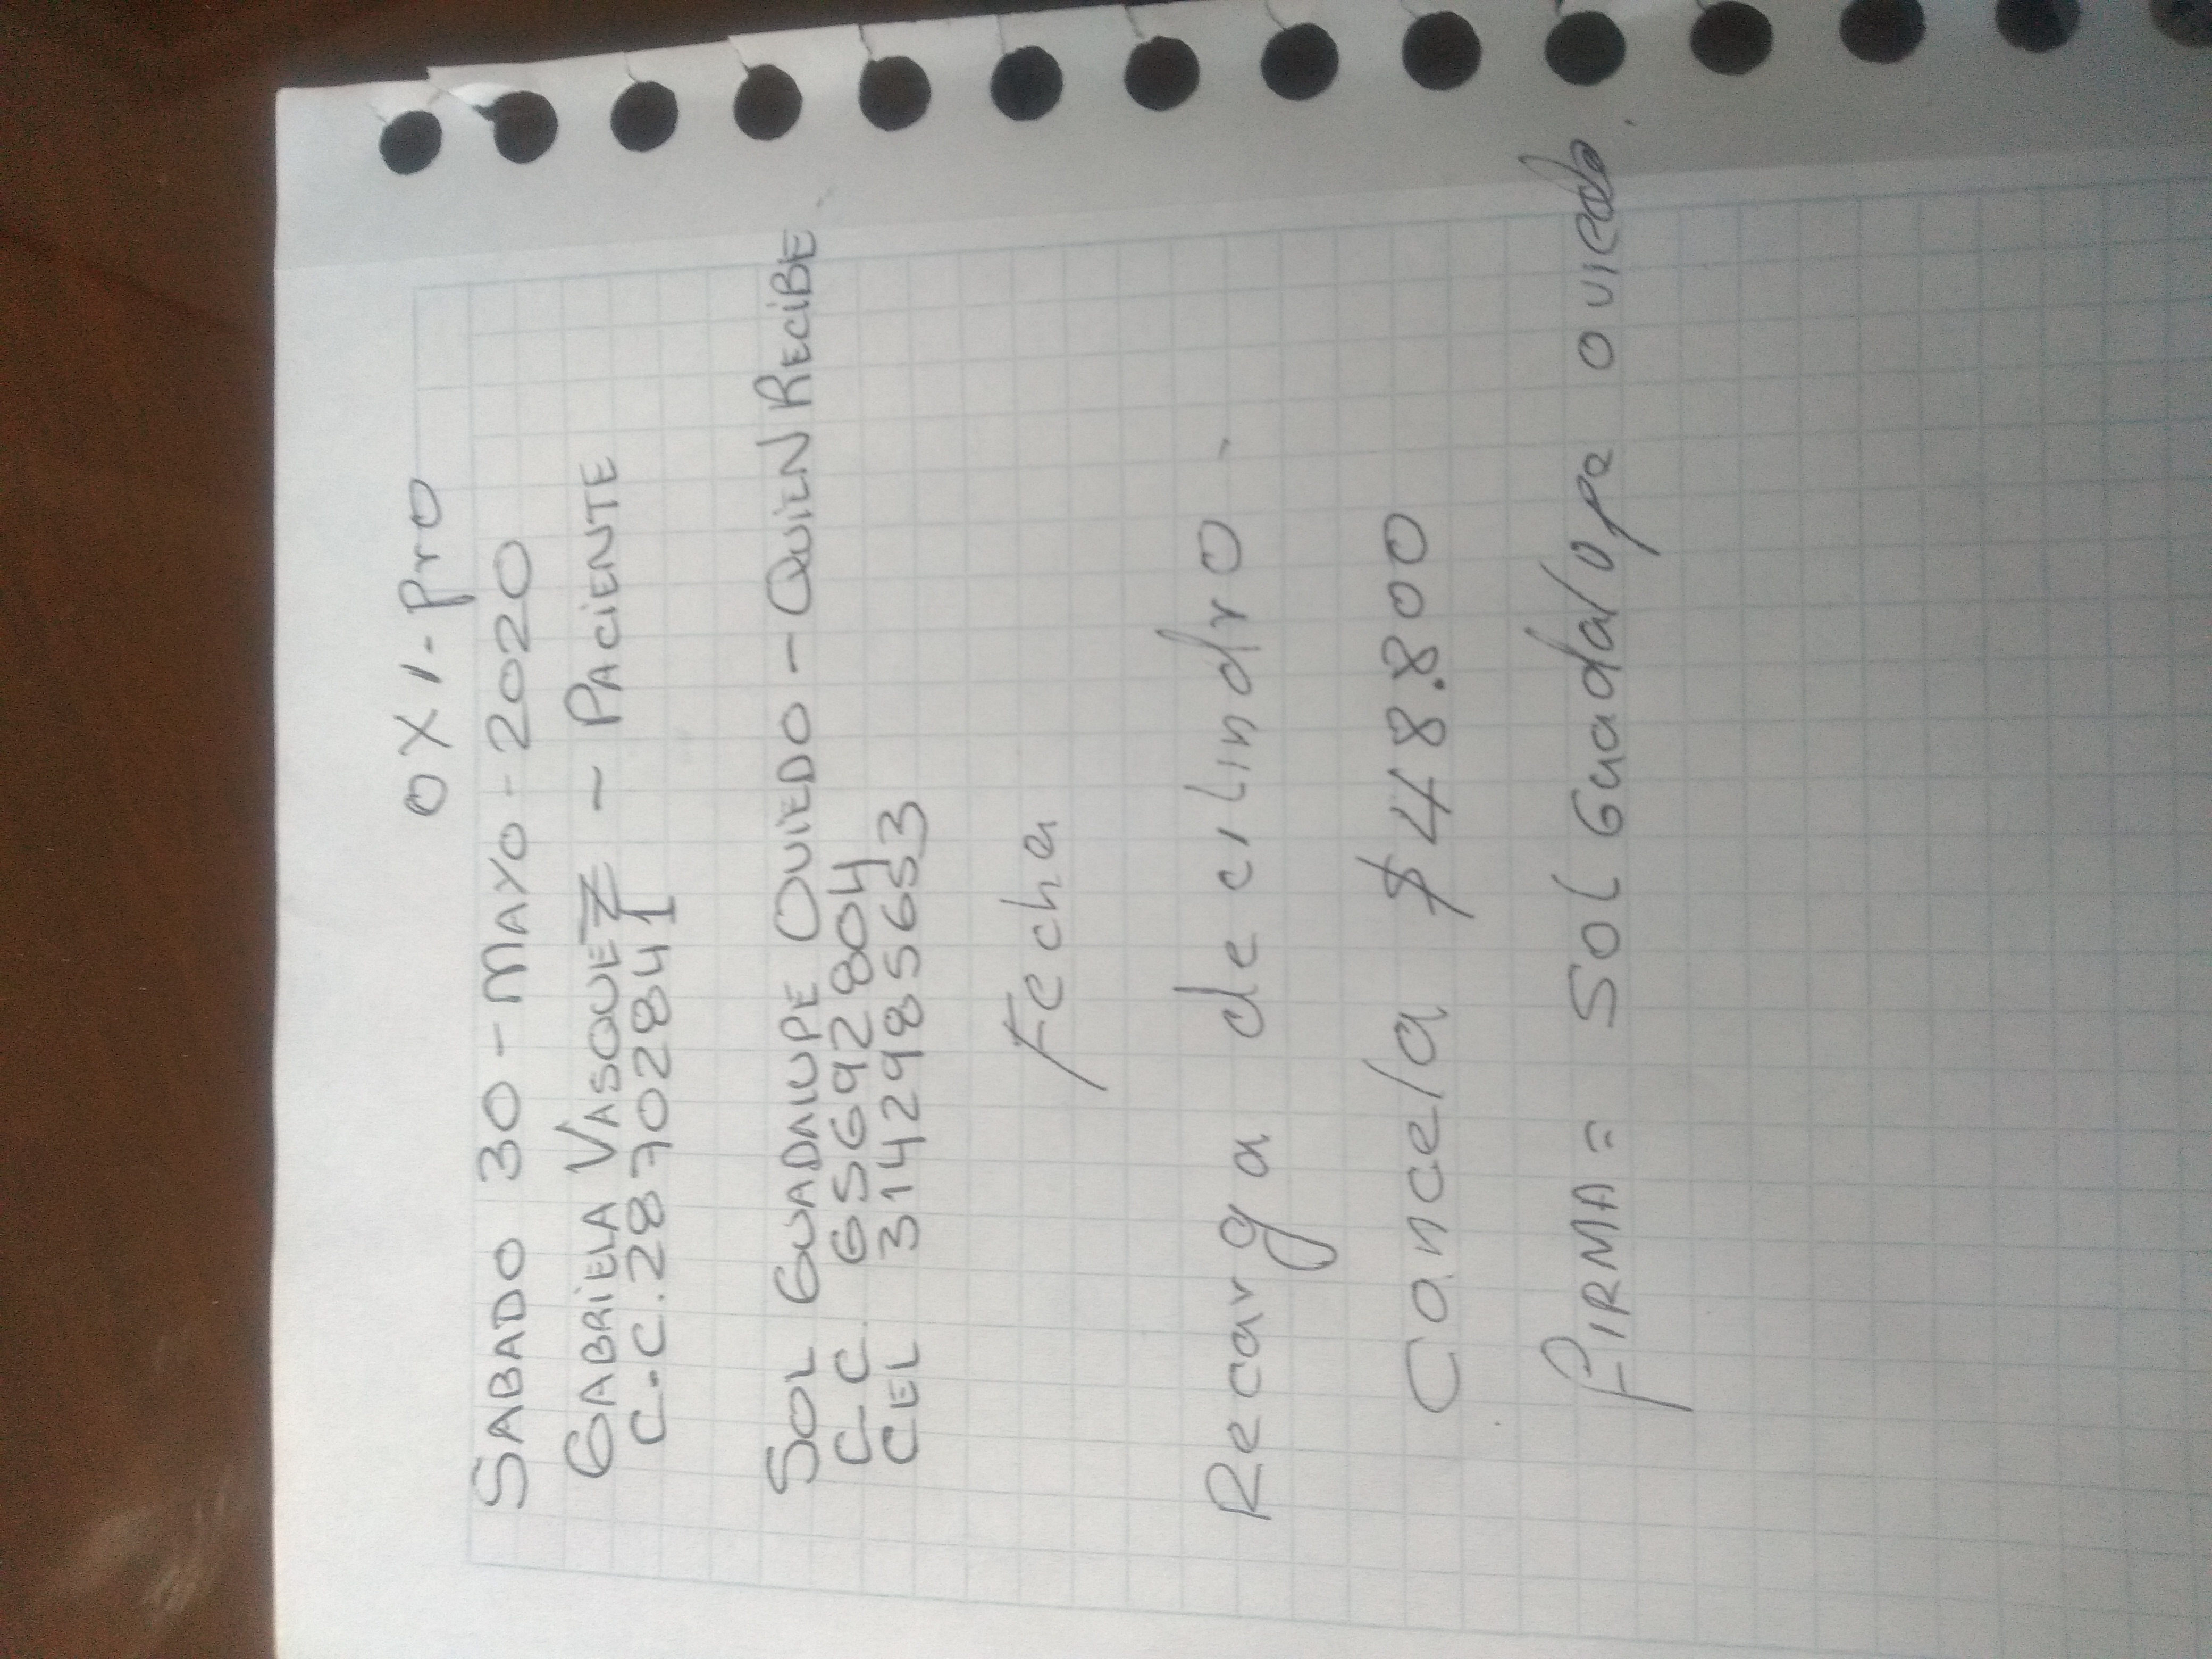 OXI-Pro
SABADO 30-MAYO-2020
GABRIELA VASQUEZ - PACIENTE
C.C.28702841
SOL GUADALUPE OVIEDO - QUIEN RECIBE
C-C. 65692804
CEL 3142985653
Fecha
Recarga de cilindro.
Cancela $48.800
FIRMA= Sol Guadalupe oviedo.